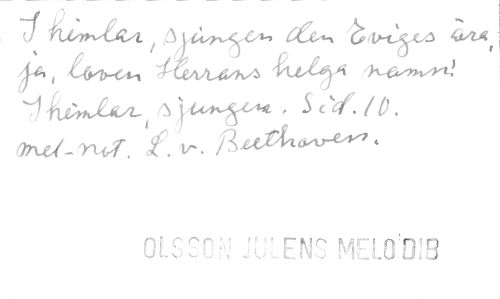 I himlar, sjungen den Eviges ära,
ja, loven Herrans helga namn!
I himlar, sjungen. Sid. 10.
mel-not. L. v. Beethoven.
OLSSON JULENS MELODIB